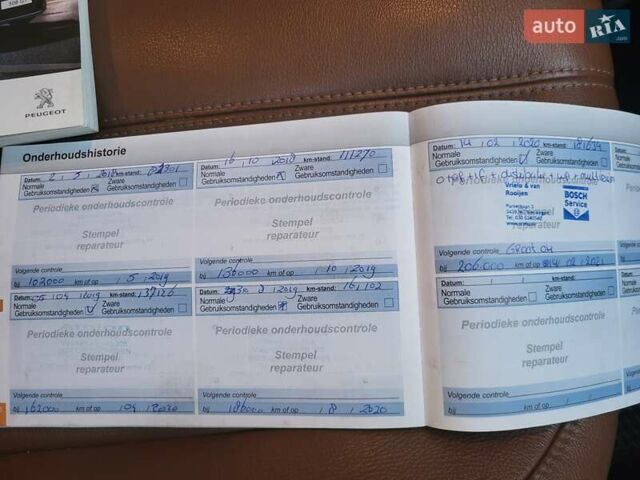 308 GT
PEUGEOT
auto RIA .com
Onderhoudshistorie
Datum: 2 , 5 , 2018 km-stand:
Normale Gebruiksomstandigheden
Zware Gebruiksomstandigheden
Periodieke onderhoudscontrole
Stempel
reparateur
Volgende controle
bij 103000 km of op 5 , 2019
Datum: 16 , 10 , 2018 km-stand: 111270
Normale Gebruiksomstandigheden
Zware Gebruiksomstandigheden
Periodieke onderhoudscontrole
Stempel
reparateur
Volgende controle
bij 136000 km of op , 10 , 2019
Datum: 5 , 04 , 2019 km-stand: 137126
Normale Gebruiksomstandigheden
Zware Gebruiksomstandigheden
Periodieke onderhoudscontrole
Stempel
reparateur
Volgende controle
bij 162000 km of op 04 , 2020
Datum: 30 8 , 2019 km-stand: 161,102
Normale Gebruiksomstandigheden
Zware Gebruiksomstandigheden
Periodieke onderhoudscontrole
Stempel
reparateur
Volgende controle
bij 186000 km of op , 8 , 2020
Datum: 14 , 02 , 2020 km-stand: 181634
Normale Gebruiksomstandigheden
Zware Gebruiksomstandigheden
Vrielo & van
Rooijen
BOSCH
Service
Stempel
reparateur
Volgende controle Groot OH
bij 206.000 km of op 14 02 , 2021
Datum: / / km-stand:
Normale Gebruiksomstandigheden
Zware Gebruiksomstandigheden
Periodieke onderhoudscontrole
Stempel
reparateur
Volgende controle
bij km of op / /